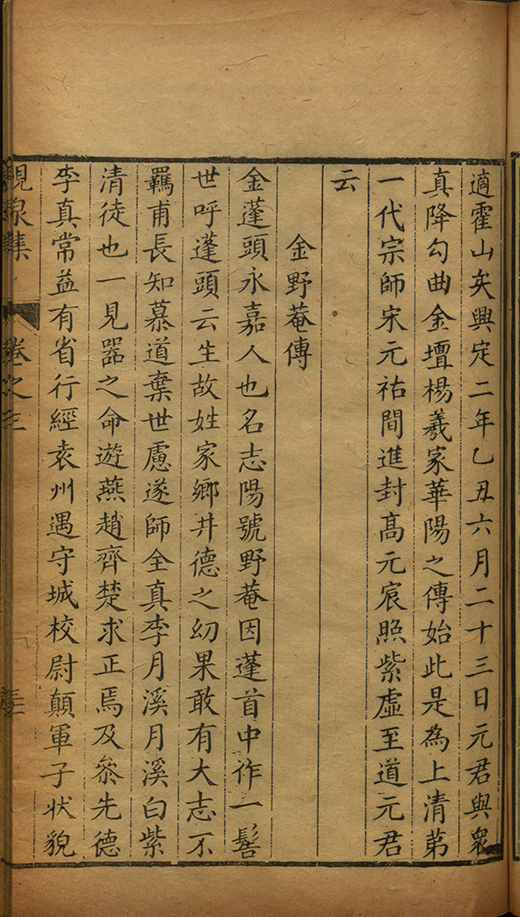 適霍山矣興定二年乙丑六月二十三日元君與衆
真降勾曲金壇楊羲家華陽之傳始此是為上清第
一代宗師宋元祐間進封髙元宸照紫虛至道元君
云
金野菴傳
金蓬頭永嘉人也名志陽號野菴因蓬首中作一髻
世呼蓬頭云生故姓家鄉井德之幼果敢有大志不
羈甫長知慕道棄世慮遂師全真李月溪月溪白紫
清徒也一見器之命遊燕趙齊楚求正焉及叅先德
李真常益有省行經袁州遇守城校尉顛軍子狀貌
卷之三